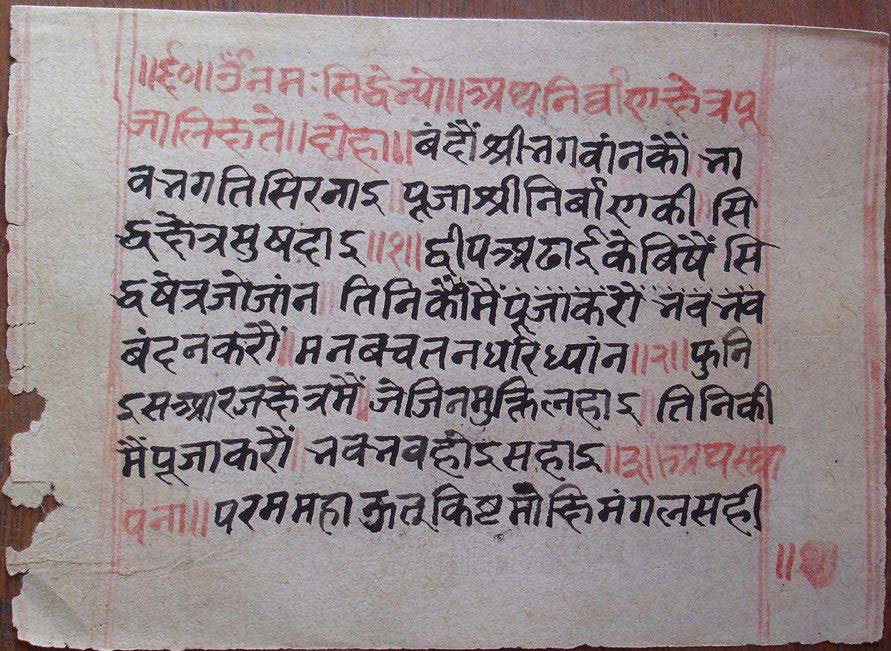 ॥ई०॥ ॐ नमः सिद्धेभ्यो॥ अथ निर्बाणक्षेत्रपू
जा लिक्षते॥ दोहा॥ बंदौं श्री भगवांनकौं भा
व भगति सिर नाइ पूजा श्री निर्बाणकी सि
द्धक्षेत्र सुषदाइ॥१॥ द्वीप अढाईके बिषैं सि
द्धषेत्र जो जांन तिनिकौं मैं पूजा करौं भव भव
बंदन करौं॥ मन बच तन धरि ध्यांन॥२॥ फुनि
इस आरजक्षेत्रमैं॥ जे जिन मुक्ति लहाइ तिनिकी
मैं पूजा करौं भव भव होइ सहाइ॥३॥ अथ स्था
पना॥ परम महा मोक्षि मंगल सही
॥१॥